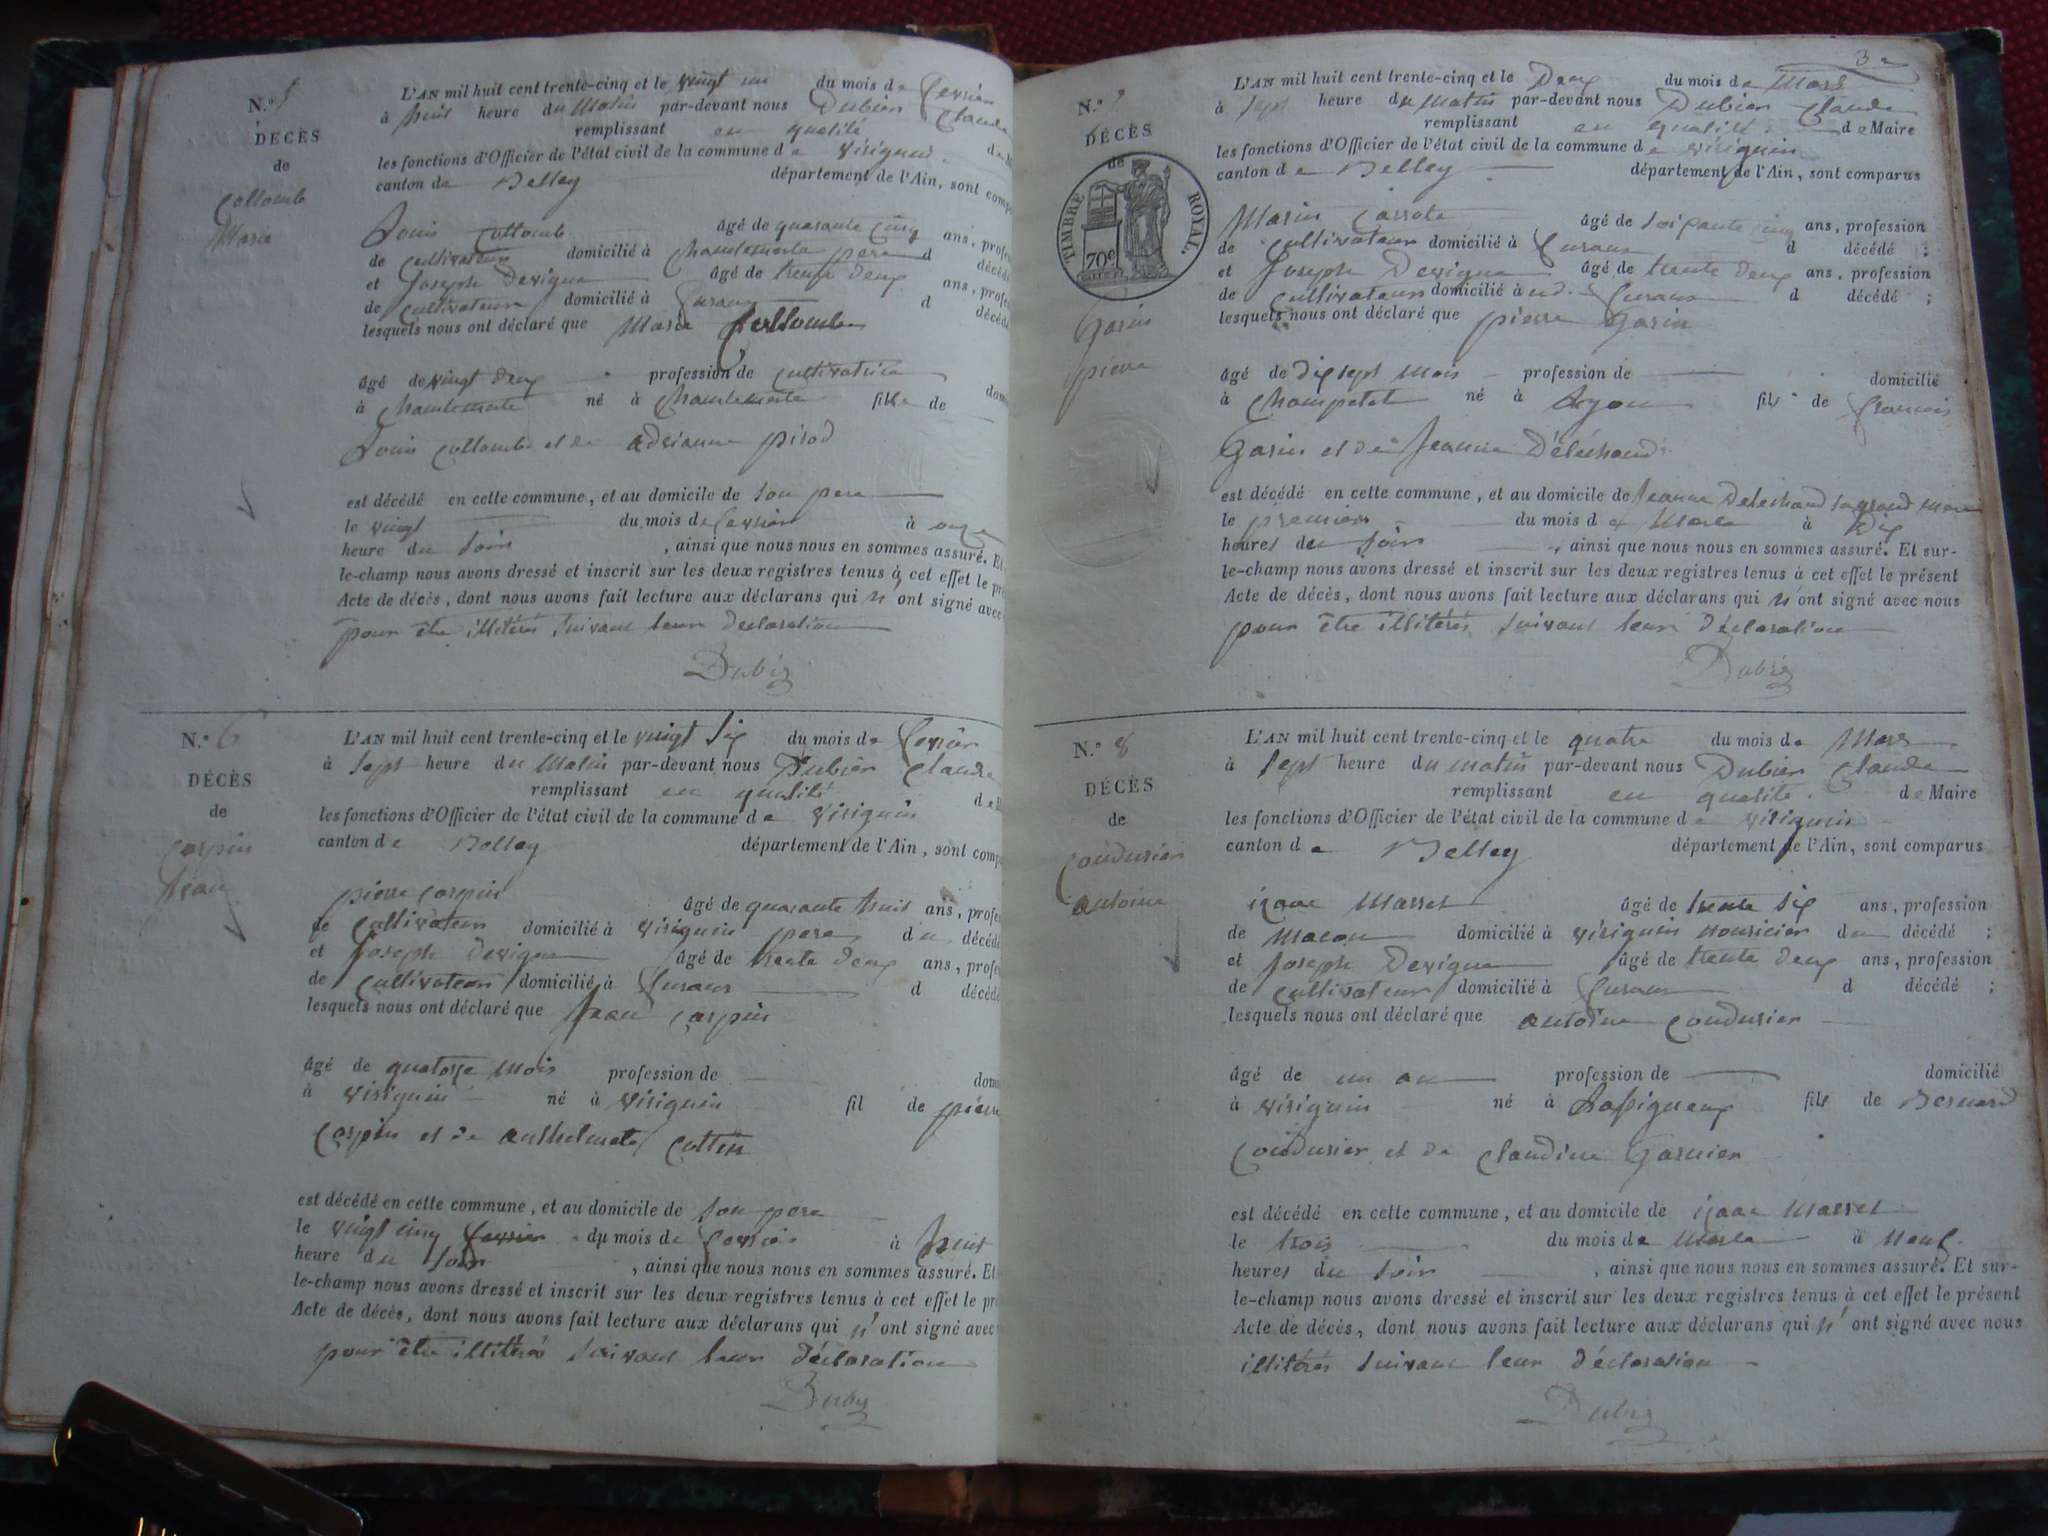 N.º 5
DÉCÈS
de
Collomb
Marie
L'AN mil huit cent trente-cinq et le vingt un du mois de fevrier
à huit heure du Matin par-devant nous Dubier Claude
remplissant en qualité
les fonctions d'Officier de l'état civil de la commune de virignin
canton de Belley département de l'Ain, sont comp
Louis Collomb âgé de quarante cinq ans, profes
de Cultivateur domicilié à Chantemerle pere d décédé
et Joseph Devigne âgé de trente deux ans, profes
de Cultivateur domicilié à d décédé
lesquels nous ont déclaré que Marie Collombe
âgé de vingt deux profession de Cultivatrice dom
à Chantemerle né à Chantemerle fille de
Louis Collombe et de adrianne pirod
est décédé en cette commune, et au domicile de son pere
le vingt du mois de fevrier à onze
heure du soir, ainsi que nous nous en sommes assuré. Et
le-champ nous avons dressé et inscrit sur les deux registres tenus à cet effet le pré
Acte de décès, dont nous avons fait lecture aux déclarans qui n'ont signé avec
pour être illitérés suivant leur declaration
Dubier
N.º 6
DÉCÈS
de
Carpin
Jean
L'AN mil huit cent trente-cinq et le vingt six du mois de fevrier
à sept heure du Matin par-devant nous Dubier Claude
remplissant en qualité de
les fonctions d'Officier de l'état civil de la commune de virignin
canton de Belley département de l'Ain, sont comp
pierre Carpin âgé de quarante huit ans, profes
de Cultivateur domicilié à virignin pere du décédé
et Joseph Devigne âgé de trente deux ans, profes
de Cultivateur domicilié à d décédé
lesquels nous ont déclaré que Jean Carpin
âgé de quatorze mois profession de dom
à virignin né à virignin fil de pierre
Carpin et de anthelmete Cottin
est décédé en cette commune, et au domicile de son pere
le vingt cinq fevrier du mois de fevrier à huit
heure du soir, ainsi que nous nous en sommes assuré. Et
le-champ nous avons dressé et inscrit sur les deux registres tenus à cet effet le pré
Acte de décès, dont nous avons fait lecture aux déclarans qui n'ont signé avec
pour être illitéré suivant leur déclaration
Dubier
3
N.º 7
DÉCÈS
de
TIMBRE ROYAL.
70c
Garin
pierre
L'AN mil huit cent trente-cinq et le Deux du mois de Mars
à sept heure du matin par-devant nous Dubier Claude
remplissant en qualité de Maire
les fonctions d'Officier de l'état civil de la commune de virignin
canton de Belley département de l'Ain, sont comparus
Marin Carrote âgé de soixante cinq ans, profession
de Cultivateur domicilié à d décédé ;
et Joseph Devigne âgé de trente deux ans, profession
de Cultivateur domicilié à d décédé ;
lesquels nous ont déclaré que pierre Garin
âgé de dix sept mois profession de domicilié
à Champetel né à Lyon fils de francois
Garin et de Jeanne Déléchand
est décédé en cette commune, et au domicile de Jeanne Delechand sa grand mere
le premier du mois de Mars à Dix
heures du soir, ainsi que nous nous en sommes assuré. Et sur-
le-champ nous avons dressé et inscrit sur les deux registres tenus à cet effet le présent
Acte de décès, dont nous avons fait lecture aux déclarans qui n'ont signé avec nous
pour être illitérés suivant leur déclaration
Dubier
N.º 8
DÉCÈS
de
Coudurier
antoine
L'AN mil huit cent trente-cinq et le quatre du mois de Mars
à sept heure du matin par-devant nous Dubier Claude
remplissant en qualité de Maire
les fonctions d'Officier de l'état civil de la commune de virignin
canton de Belley département de l'Ain, sont comparus
izaac Masset âgé de trente six ans, profession
de Macon domicilié à virignin nouricier du décédé ;
et Joseph Devigne âgé de trente deux ans, profession
de Cultivateur domicilié à d décédé ;
lesquels nous ont déclaré que antoine Coudurier
âgé de un an profession de domicilié
à virignin né à fils de Bernard
Coudurier et de Claudine Garnier
est décédé en cette commune, et au domicile de izaac Masset
le trois du mois de à neuf
heures du soir, ainsi que nous nous en sommes assuré. Et sur-
le-champ nous avons dressé et inscrit sur les deux registres tenus à cet effet le présent
Acte de décès, dont nous avons fait lecture aux déclarans qui n'ont signé avec nous
illitérés suivant leur déclaration
Dubier